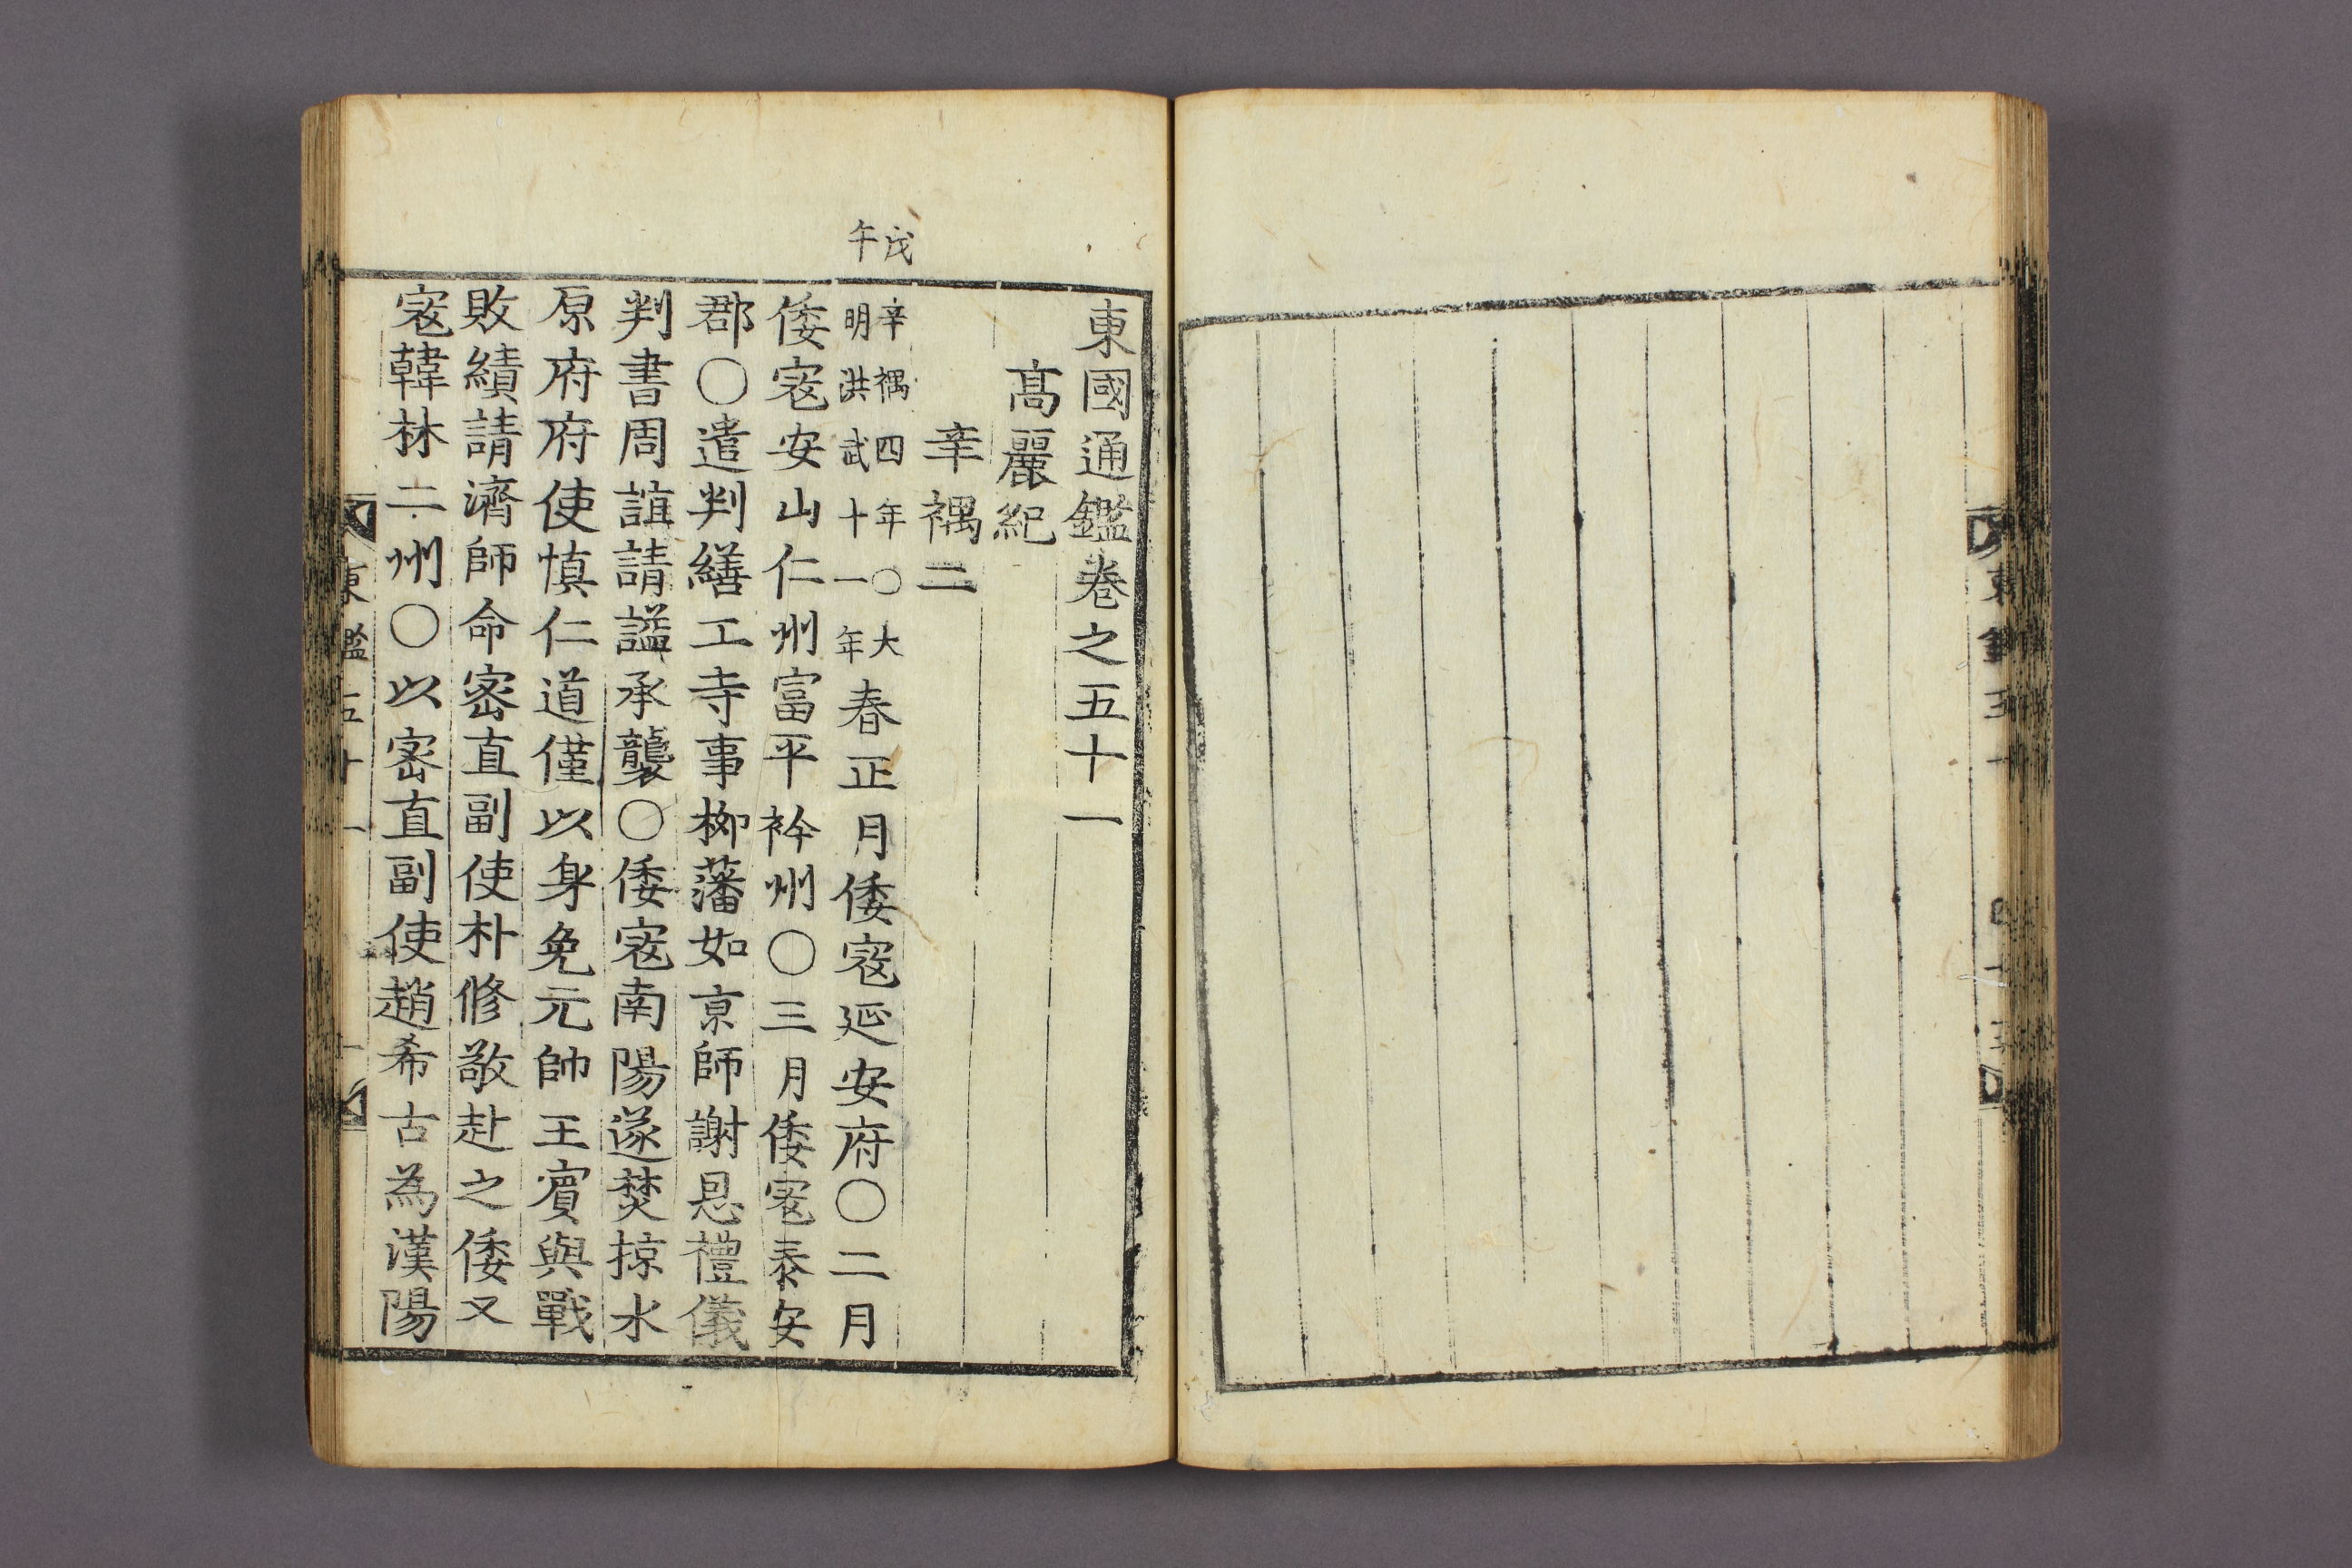 東國通鑑卷之五十一
高麗紀
辛禑二
戊午
辛禑四年〇大
明洪武十一年
春正月倭寇延安府〇二月
倭寇安山仁州富平衿州〇三月倭寇泰安
郡〇遣判繕工寺事柳藩如京師謝恩禮儀
判書周誼請謚承襲〇倭寇南陽遂焚掠水
原府府使慎仁道僅以身免元帥王賓與戰
敗績請濟師命密直副使朴修敬赴之倭又
寇韓林二州〇以密直副使趙希古為漢陽
東鑑五十一
一